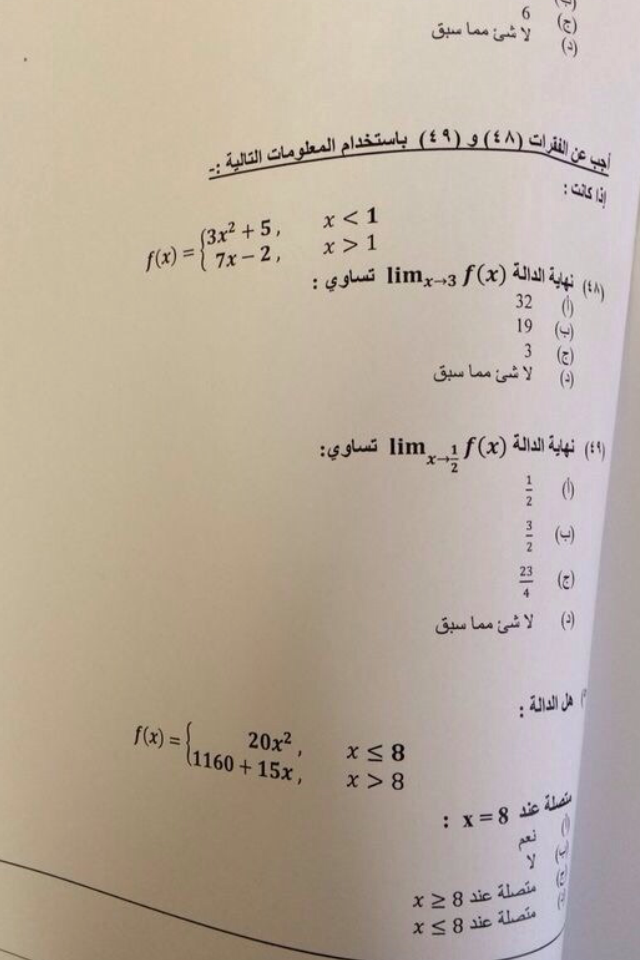 (ج) 6
(د) لا شئ مما سبق
أجب عن الفقرات (٤٨) و (٤٩) باستخدام المعلومات التالية :-
إذا كانت :
f(x) = { 3x² + 5 , x < 1
7x − 2 , x > 1
(٤٨) نهاية الدالة lim x→3 f(x) تساوي :
(أ) 32
(ب) 19
(ج) 3
(د) لا شئ مما سبق
(٤٩) نهاية الدالة lim x→1/2 f(x) تساوي:
(أ) 1/2
(ب) 3/2
(ج) 23/4
(د) لا شئ مما سبق
هل الدالة :
f(x) = { 20x² , x ≤ 8
1160 + 15x , x > 8
متصلة عند x = 8 :
(أ) نعم
(ب) لا
(ج) متصلة عند x ≥ 8
متصلة عند x ≤ 8